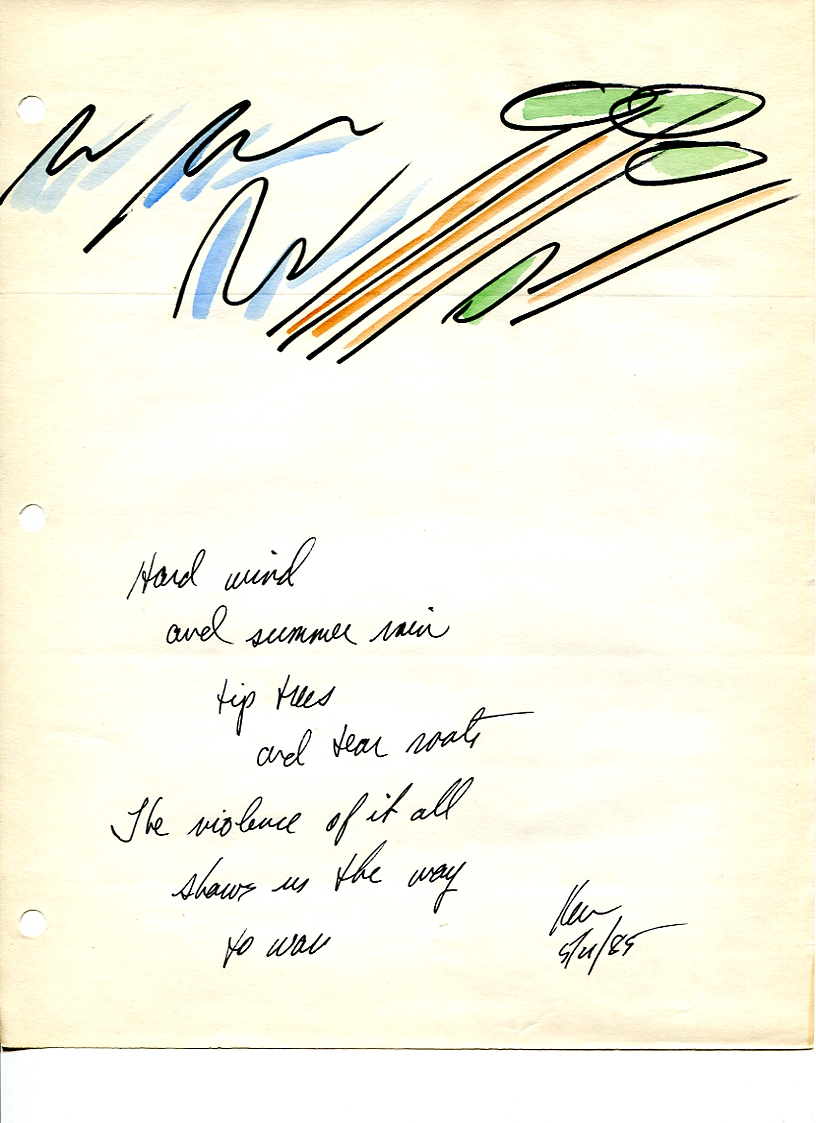 Hard wind
and summer rain
tip trees
and tear roots
The violence of it all
shows us the way
to war
Ken
5/11/85